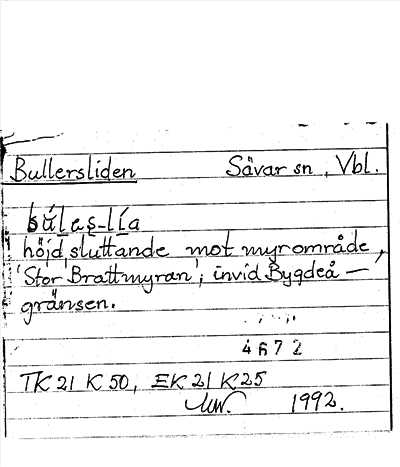 Bullersliden Sävar sn, Vbl.
búlas̩-lía
höjd, sluttande mot myrområde,
'Stor Brattmyran', invid Bygdeå-
gränsen.
4672
TK 21 K 50, EK 21 K 25
1992.